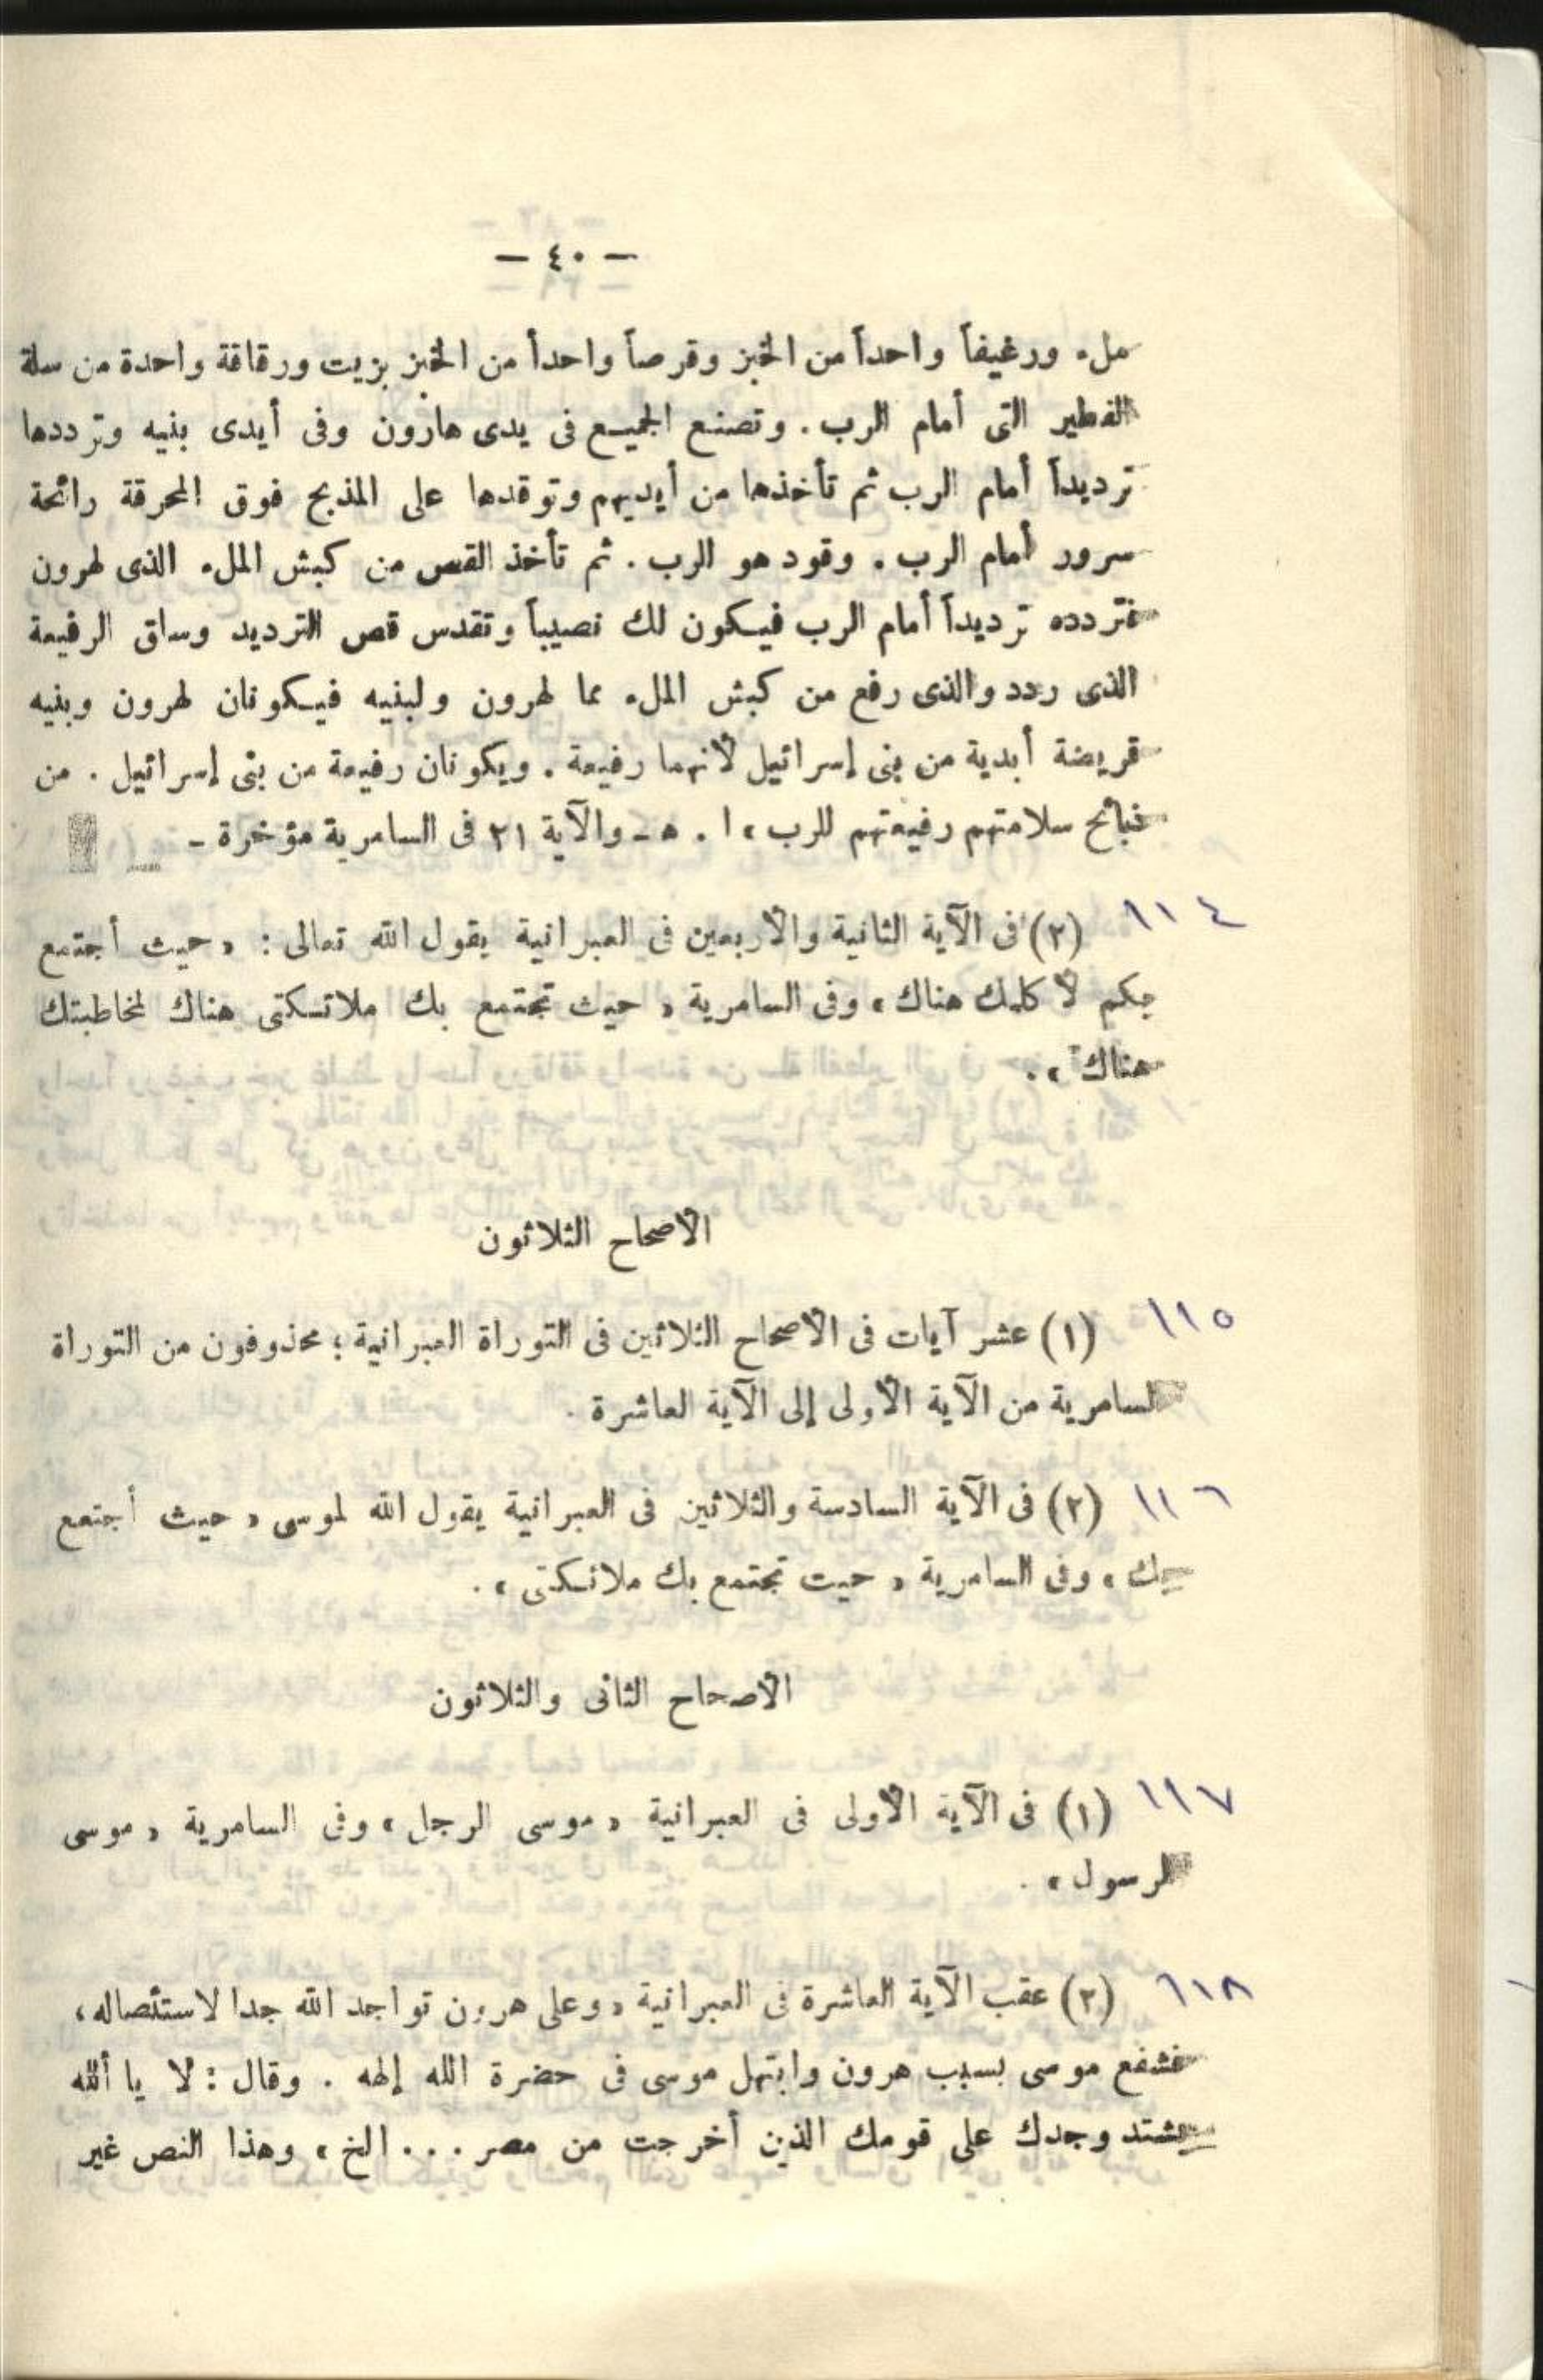 — ٤٠ —
ملء ورغيفاً واحداً من الخبز وقرصاً واحداً من الخبز بزيت ورقاقة واحدة من سلة
الفطير التى أمام الرب . وتصنع الجميع فى يدى هارون وفى أيدى بنيه وترددها
ترديداً أمام الرب ثم تأخذها من أيديهم وتوقدها على المذبح فوق المحرقة رائحة
سرور أمام الرب . وقود هو الرب . ثم تأخذ القص من كبش الملء الذى لهرون
فتردده ترديداً أمام الرب فيكون لك نصيباً وتقدس قص الترديد وساق الرفيعة
الذى ردد والذى رفع من كبش الملء مما لهرون ولبنيه فيكونان لهرون وبنيه
فريضة أبدية من بنى إسرائيل لأنهما رفيعة . ويكونان رفيعة من بنى إسرائيل . من
ذبائح سلامتهم رفيعتهم للرب » ا . هـ - والآية ٢١ فى السامرية مؤخرة -
١١٤ (٢) فى الآية الثانية والأربعين فى العبرانية يقول الله تعالى : « حيث أجتمع
بكم لأكلمك هناك » وفى السامرية « حيث تجتمع بك ملائكتى هناك لمخاطبتك
هناك » .
الأصحاح الثلاثون
١١٥ (١) عشر آيات فى الأصحاح الثلاثين فى التوراة العبرانية ؛ محذوفون من التوراة
السامرية من الآية الأولى إلى الآية العاشرة .
١١٦ (٢) فى الآية السادسة والثلاثين فى العبرانية يقول الله لموسى « حيث أجتمع
بك » وفى السامرية « حيت تجتمع بك ملائكتى » .
الأصحاح الثانى والثلاثون
١١٧ (١) فى الآية الأولى فى العبرانية « موسى الرجل » وفى السامرية « موسى
الرسول » .
١١٨ (٢) عقب الآية العاشرة فى العبرانية « وعلى هرون تواجد الله جدا لاستئصاله ،
فشفع موسى بسبب هرون وابتهل موسى فى حضرة الله إلهه . وقال : لا يا ألله
يشتد وجدك على قومك الذين أخرجت من مصر . . . الخ » وهذا النص غير